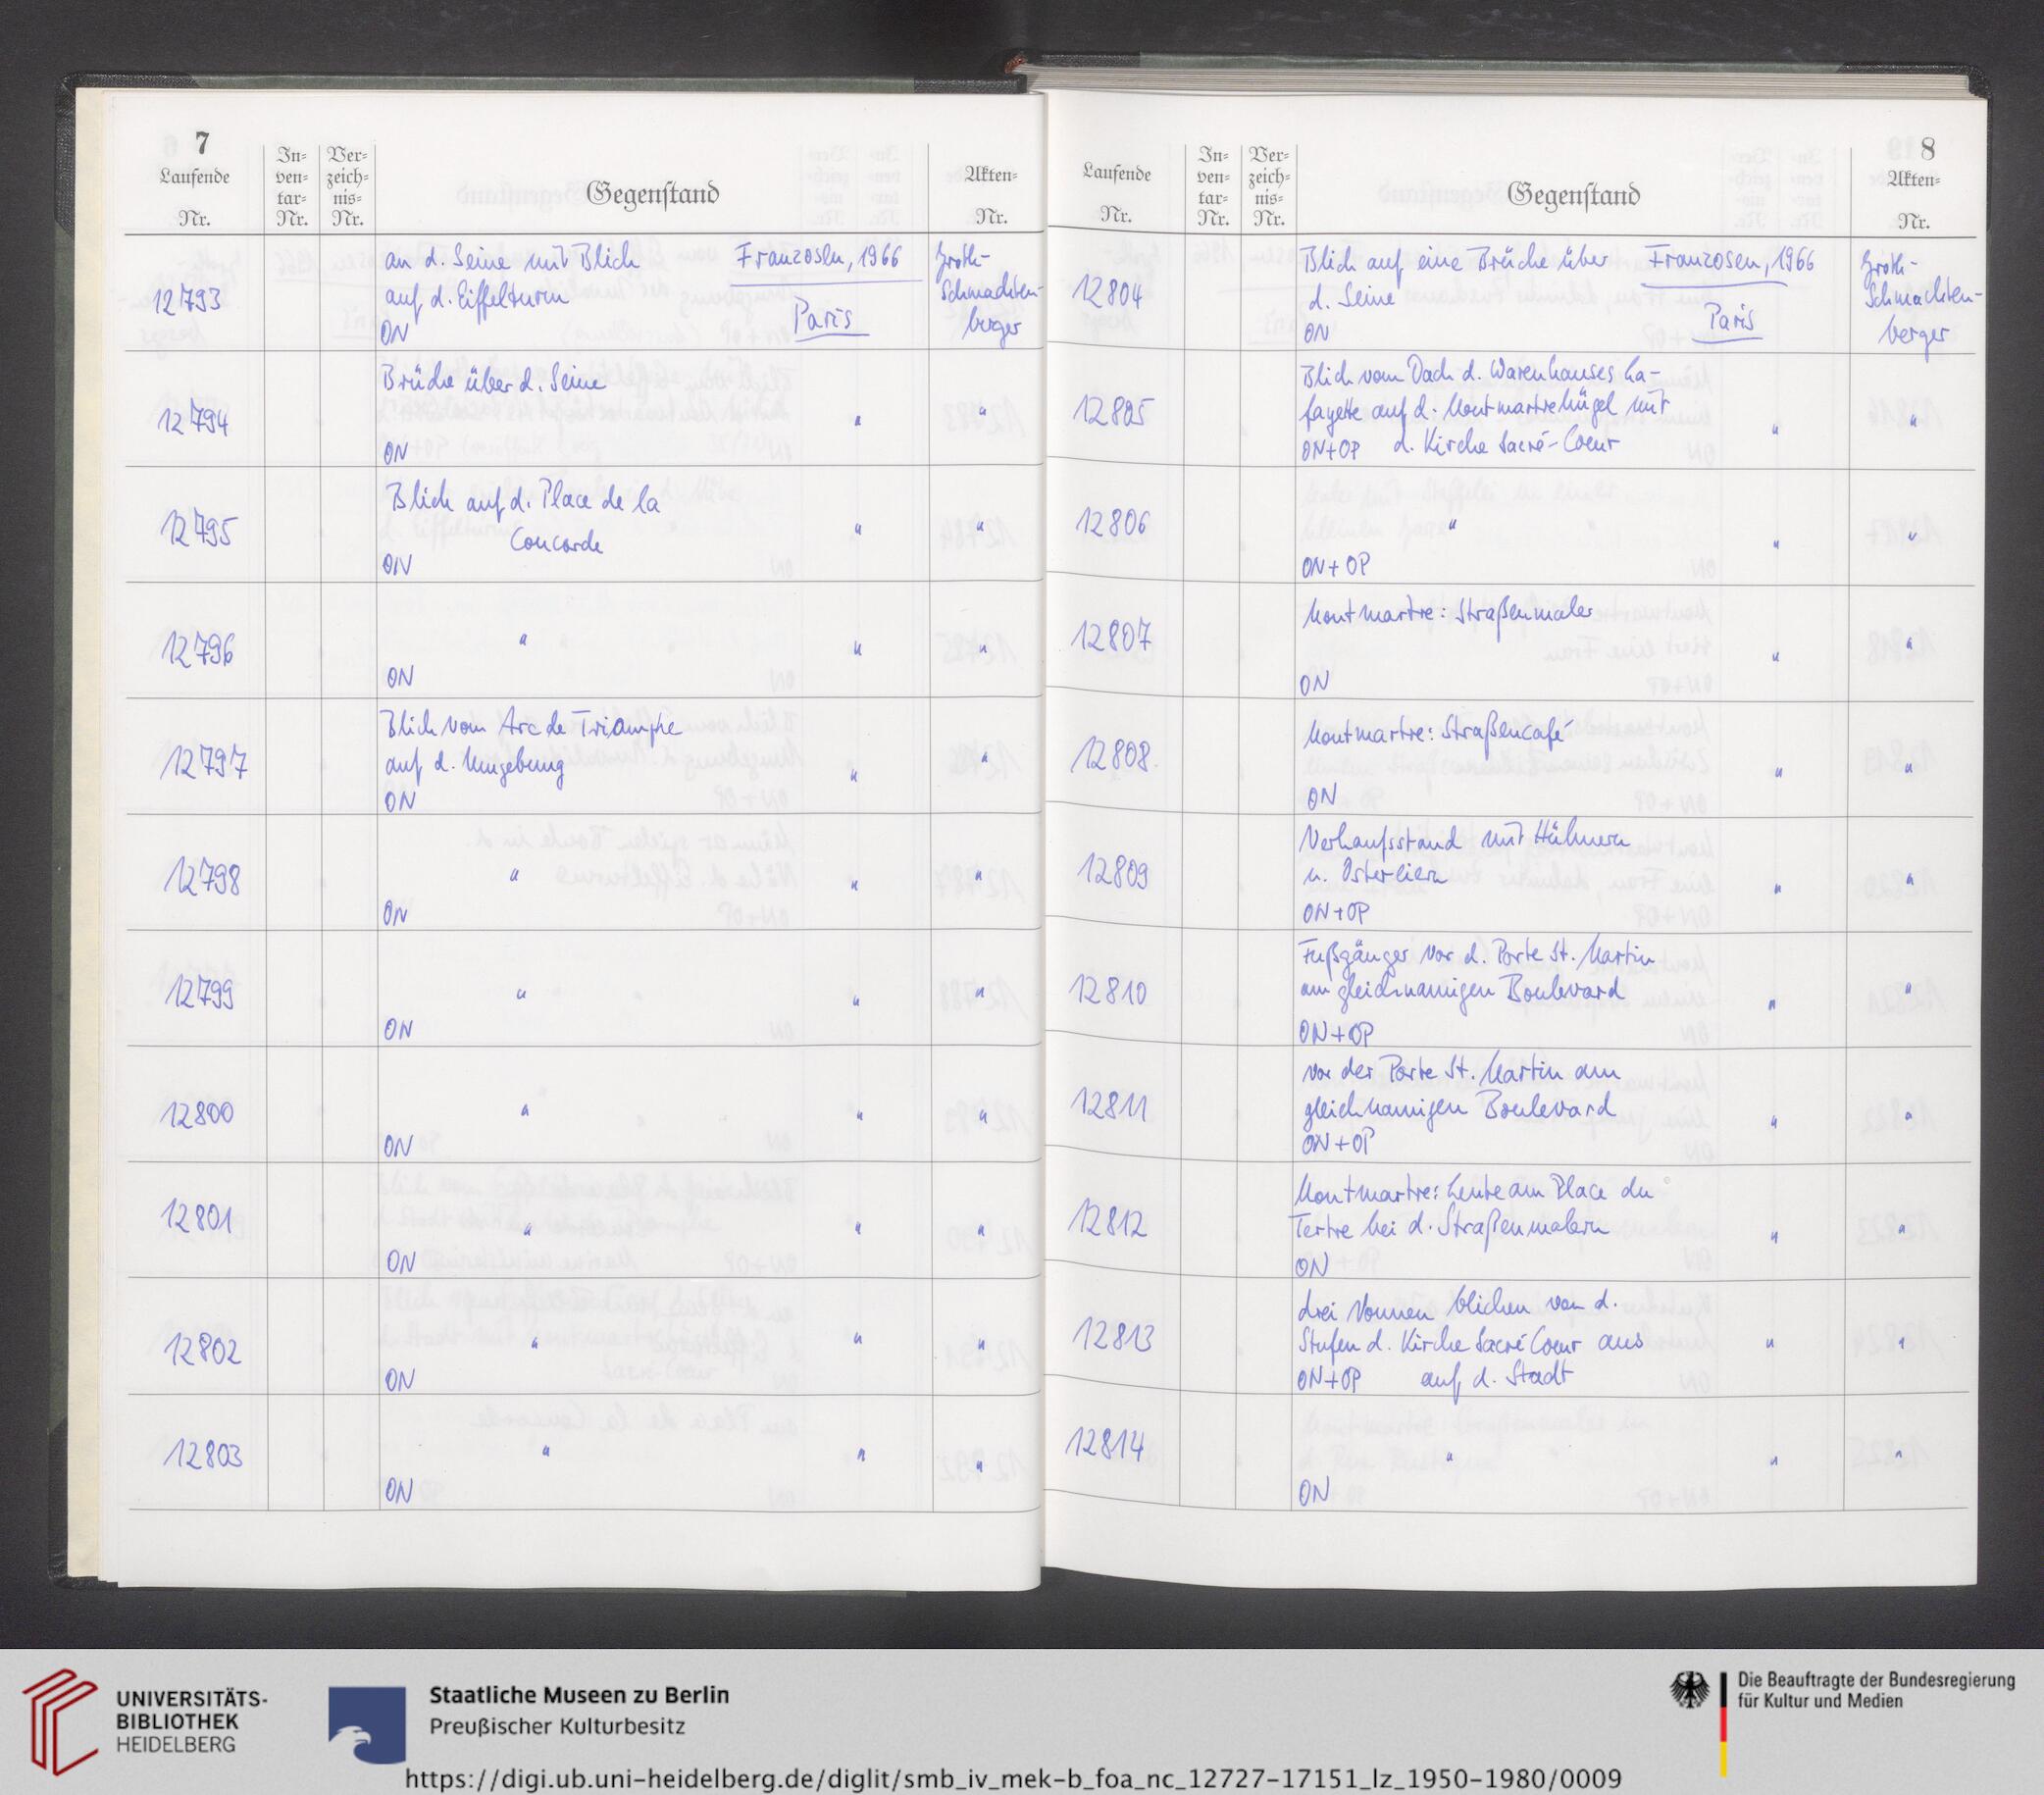 7
Laufende
Nr.
In-
ven-
tar-
Nr.
Ver-
zeich-
nis-
Nr.
Gegenstand
Akten-
Nr.
12793
an d. Seine mit Blick
auf d. Eiffelturm
ON
Franzosen, 1966
Paris
Groth-
Schmachten-
berger
12794
Brücke über d. Seine
ON
"
"
12795
Blick auf d. Place de la
Concorde
ON
"
"
12796
"
ON
"
"
12797
Blick vom Arc de Triomphe
auf d. Umgebung
ON
"
"
12798
"
ON
"
"
12799
"
ON
"
"
12800
"
ON
"
"
12801
"
ON
"
"
12802
"
ON
"
"
12803
"
ON
"
"
8
Laufende
Nr.
In-
ven-
tar-
Nr.
Ver-
zeich-
nis-
Nr.
Gegenstand
Akten-
Nr.
12804
Blick auf eine Brücke über
d. Seine
ON
Franzosen, 1966
Paris
Groth-
Schmachten-
berger
12805
Blick vom Dach d. Warenhauses La-
fayette auf d. Montmartrehügel mit
ON+OP d. Kirche Sacré-Coeur
"
"
12806
"
ON+OP
"
"
12807
Montmartre: Straßenmaler
ON
"
"
12808.
Montmartre: Straßencafé
ON
"
"
12809
Verkaufsstand mit Hühnern
u. Ostereiern
ON+OP
"
"
12810
Fußgänger vor d. Porte St. Martin
am gleichnamigen Boulevard
ON+OP
"
"
12811
vor der Porte St. Martin am
gleichnamigen Boulevard
ON+OP
"
"
12812
Montmartre: Leute am Place du
Tertre bei d. Straßenmalern
ON
"
"
12813
drei Nonnen blicken von d.
Stufen d. Kirche Sacré Coeur aus
ON+OP auf d. Stadt
"
"
12814
"
ON
"
"
UNIVERSITÄTS-
BIBLIOTHEK
HEIDELBERG
Staatliche Museen zu Berlin
Preußischer Kulturbesitz
Die Beauftragte der Bundesregierung
für Kultur und Medien
https://digi.ub.uni-heidelberg.de/diglit/smb_iv_mek-b_foa_nc_12727-17151_lz_1950-1980/0009